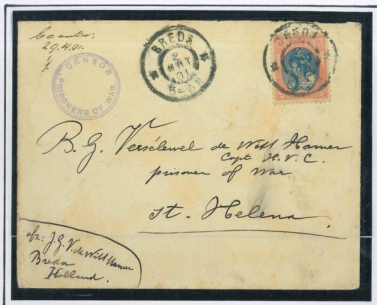 29.4.01.
CENSOR
PRISONERS OF WAR
BREDA
2 MRT 01
BREDA
B. G. Versélewel de Witt Hamer
Capt. H. V. C.
prisoner of War
St. Helena.
afz: J. G. V. de Witt Hamer
Breda
Holland.